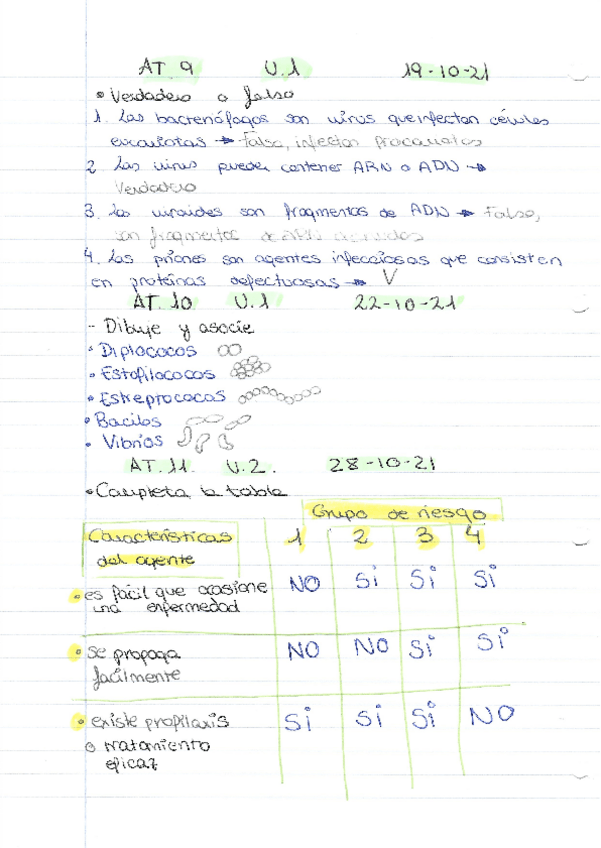 AT.9 U.1 19-10-21
• Verdadero o falso
1. Los bacteriófagos son virus que infectan células
eucariotas → Falso, infectan procariotas
2. Los virus pueden contener ARN o ADN →
Verdadero
3. Los viroides son fragmentos de ADN → Falso,
son fragmentos de ARN
4. Los priones son agentes infecciosos que consisten
en proteínas defectuosas → V
AT.10 U.1 22-10-21
- Dibuje y asocie
• Diplococos
• Estafilococos
• Estreprococos
• Bacilos
• Vibrios
AT.11. U.2. 28-10-21
• Completa la tabla
Grupo de riesgo
Características 1 2 3 4
del agente
• es fácil que ocasione NO Si Si Si
una enfermedad
• se propaga NO NO Si Si
facilmente
• existe profilaxis Si Si Si NO
o tratamiento
eficaz